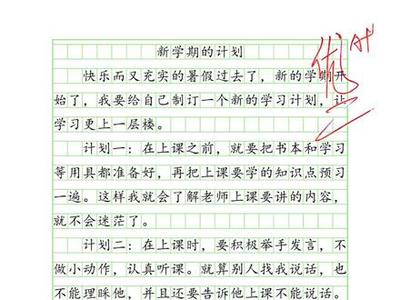 新学期的计划
优 A+
快乐而又充实的暑假过去了，新的学期开
始了，我要给自己制订一个新的学习计划，让
学习更上一层楼。
计划一：在上课之前，就要把书本和学习
等用具都准备好，再把上课要学的知识点预习
一遍。这样我就会了解老师上课要讲的内容，
就不会迷茫了。
计划二：在上课时，要积极举手发言，不
做小动作，认真听课。就算别人找我说话，也
不能理睬他，并且还要告诉他上课不能说话。